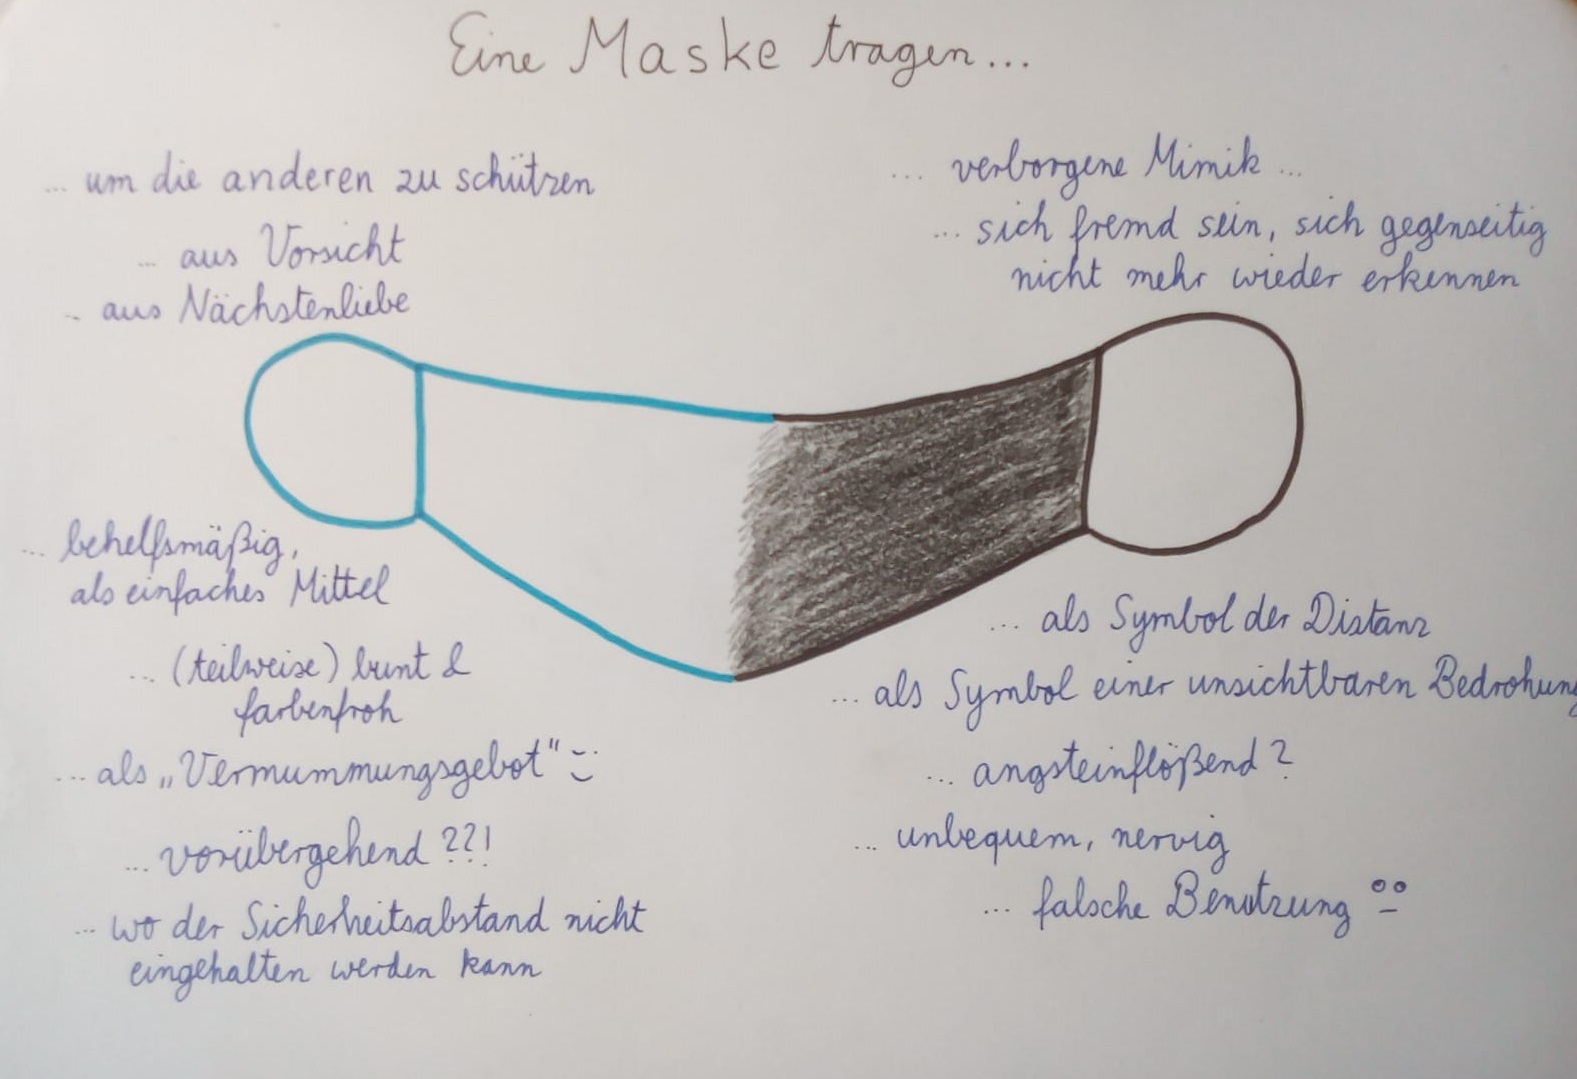 Eine Maske tragen...
... um die anderen zu schützen
... aus Vorsicht
.. aus Nächstenliebe
... behelfsmäßig,
als einfaches Mittel
... (teilweise) bunt &
farbenfroh
... als „Vermummungsgebot"
... vorübergehend ??!
... wo der Sicherheitsabstand nicht
eingehalten werden kann
... verborgene Mimik ...
... sich fremd sein, sich gegenseitig
nicht mehr wieder erkennen
... als Symbol der Distanz
... als Symbol einer unsichtbaren Bedrohung
... angsteinflößend ?
... unbequem, nervig
... falsche Benutzung